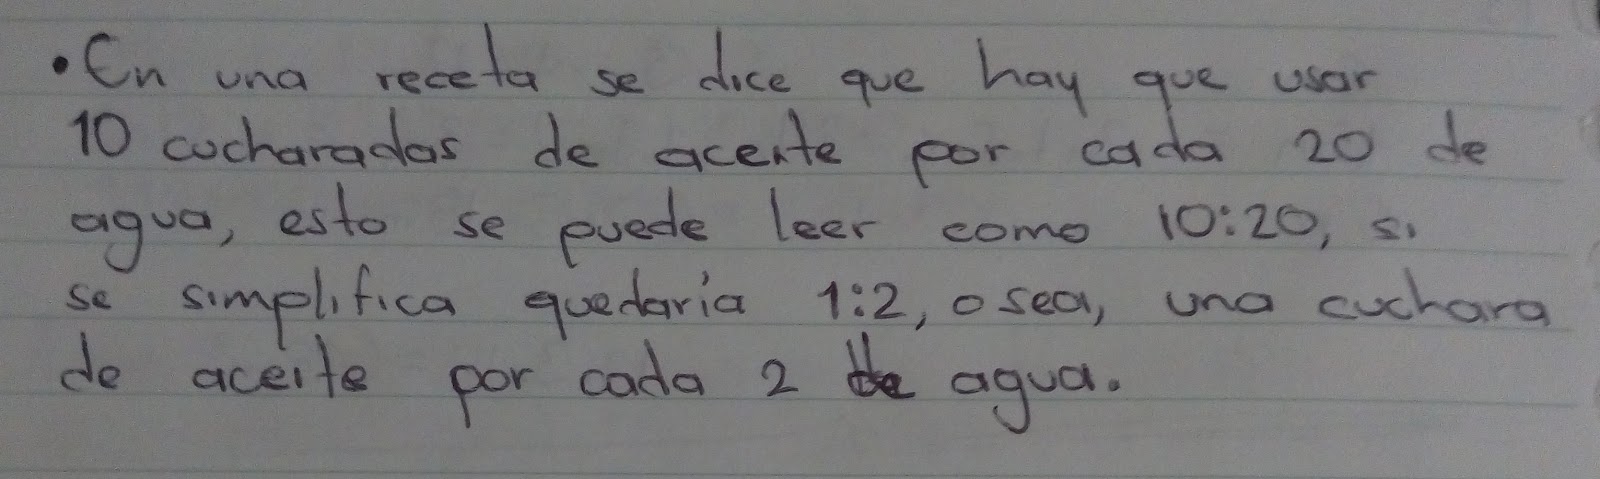 • En una receta se dice que hay que usar
10 cucharadas de aceite por cada 20 de
agua, esto se puede leer como 10:20, si
se simplifica quedaría 1:2, o sea, una cuchara
de aceite por cada 2 de agua.